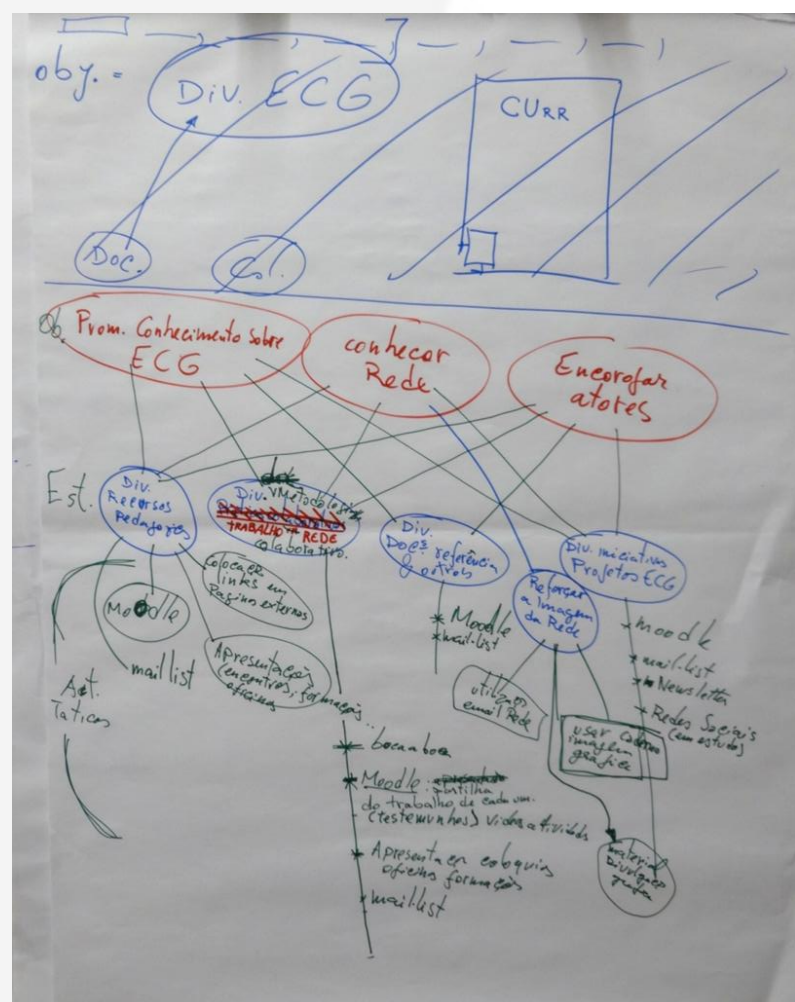 obj. =
Div. ECG
CURR
Doc.
Est.
Ob.
Prom. Conhecimento sobre
ECG
conhecer
Rede
Encorajar
atores
Est.
Div.
Recursos
Pedagógicos
Div. Metodologia
TRABALHO REDE
colaborativo.
Div.
Docs referência
& outros
Reforçar
a Imagem
da Rede
Div. iniciativas
Projetos ECG
Moodle
mail list
Colocar
links em
Paginas externas
Apresentação
(encontros, formações...
oficinas
Act.
Taticas
* Moodle
* mail-list
utilizar
email Rede
usar
imagem
gráfica
material
Divulgação
* moodle
* mail-list
* Newsletter
* Redes Sociais
(em estudo)
* boca a boca
* Moodle: partilha
do trabalho de cada um.
(testemunhos) videos atividades
* Apresenta em colóquios
oficinas formação
* mail-list